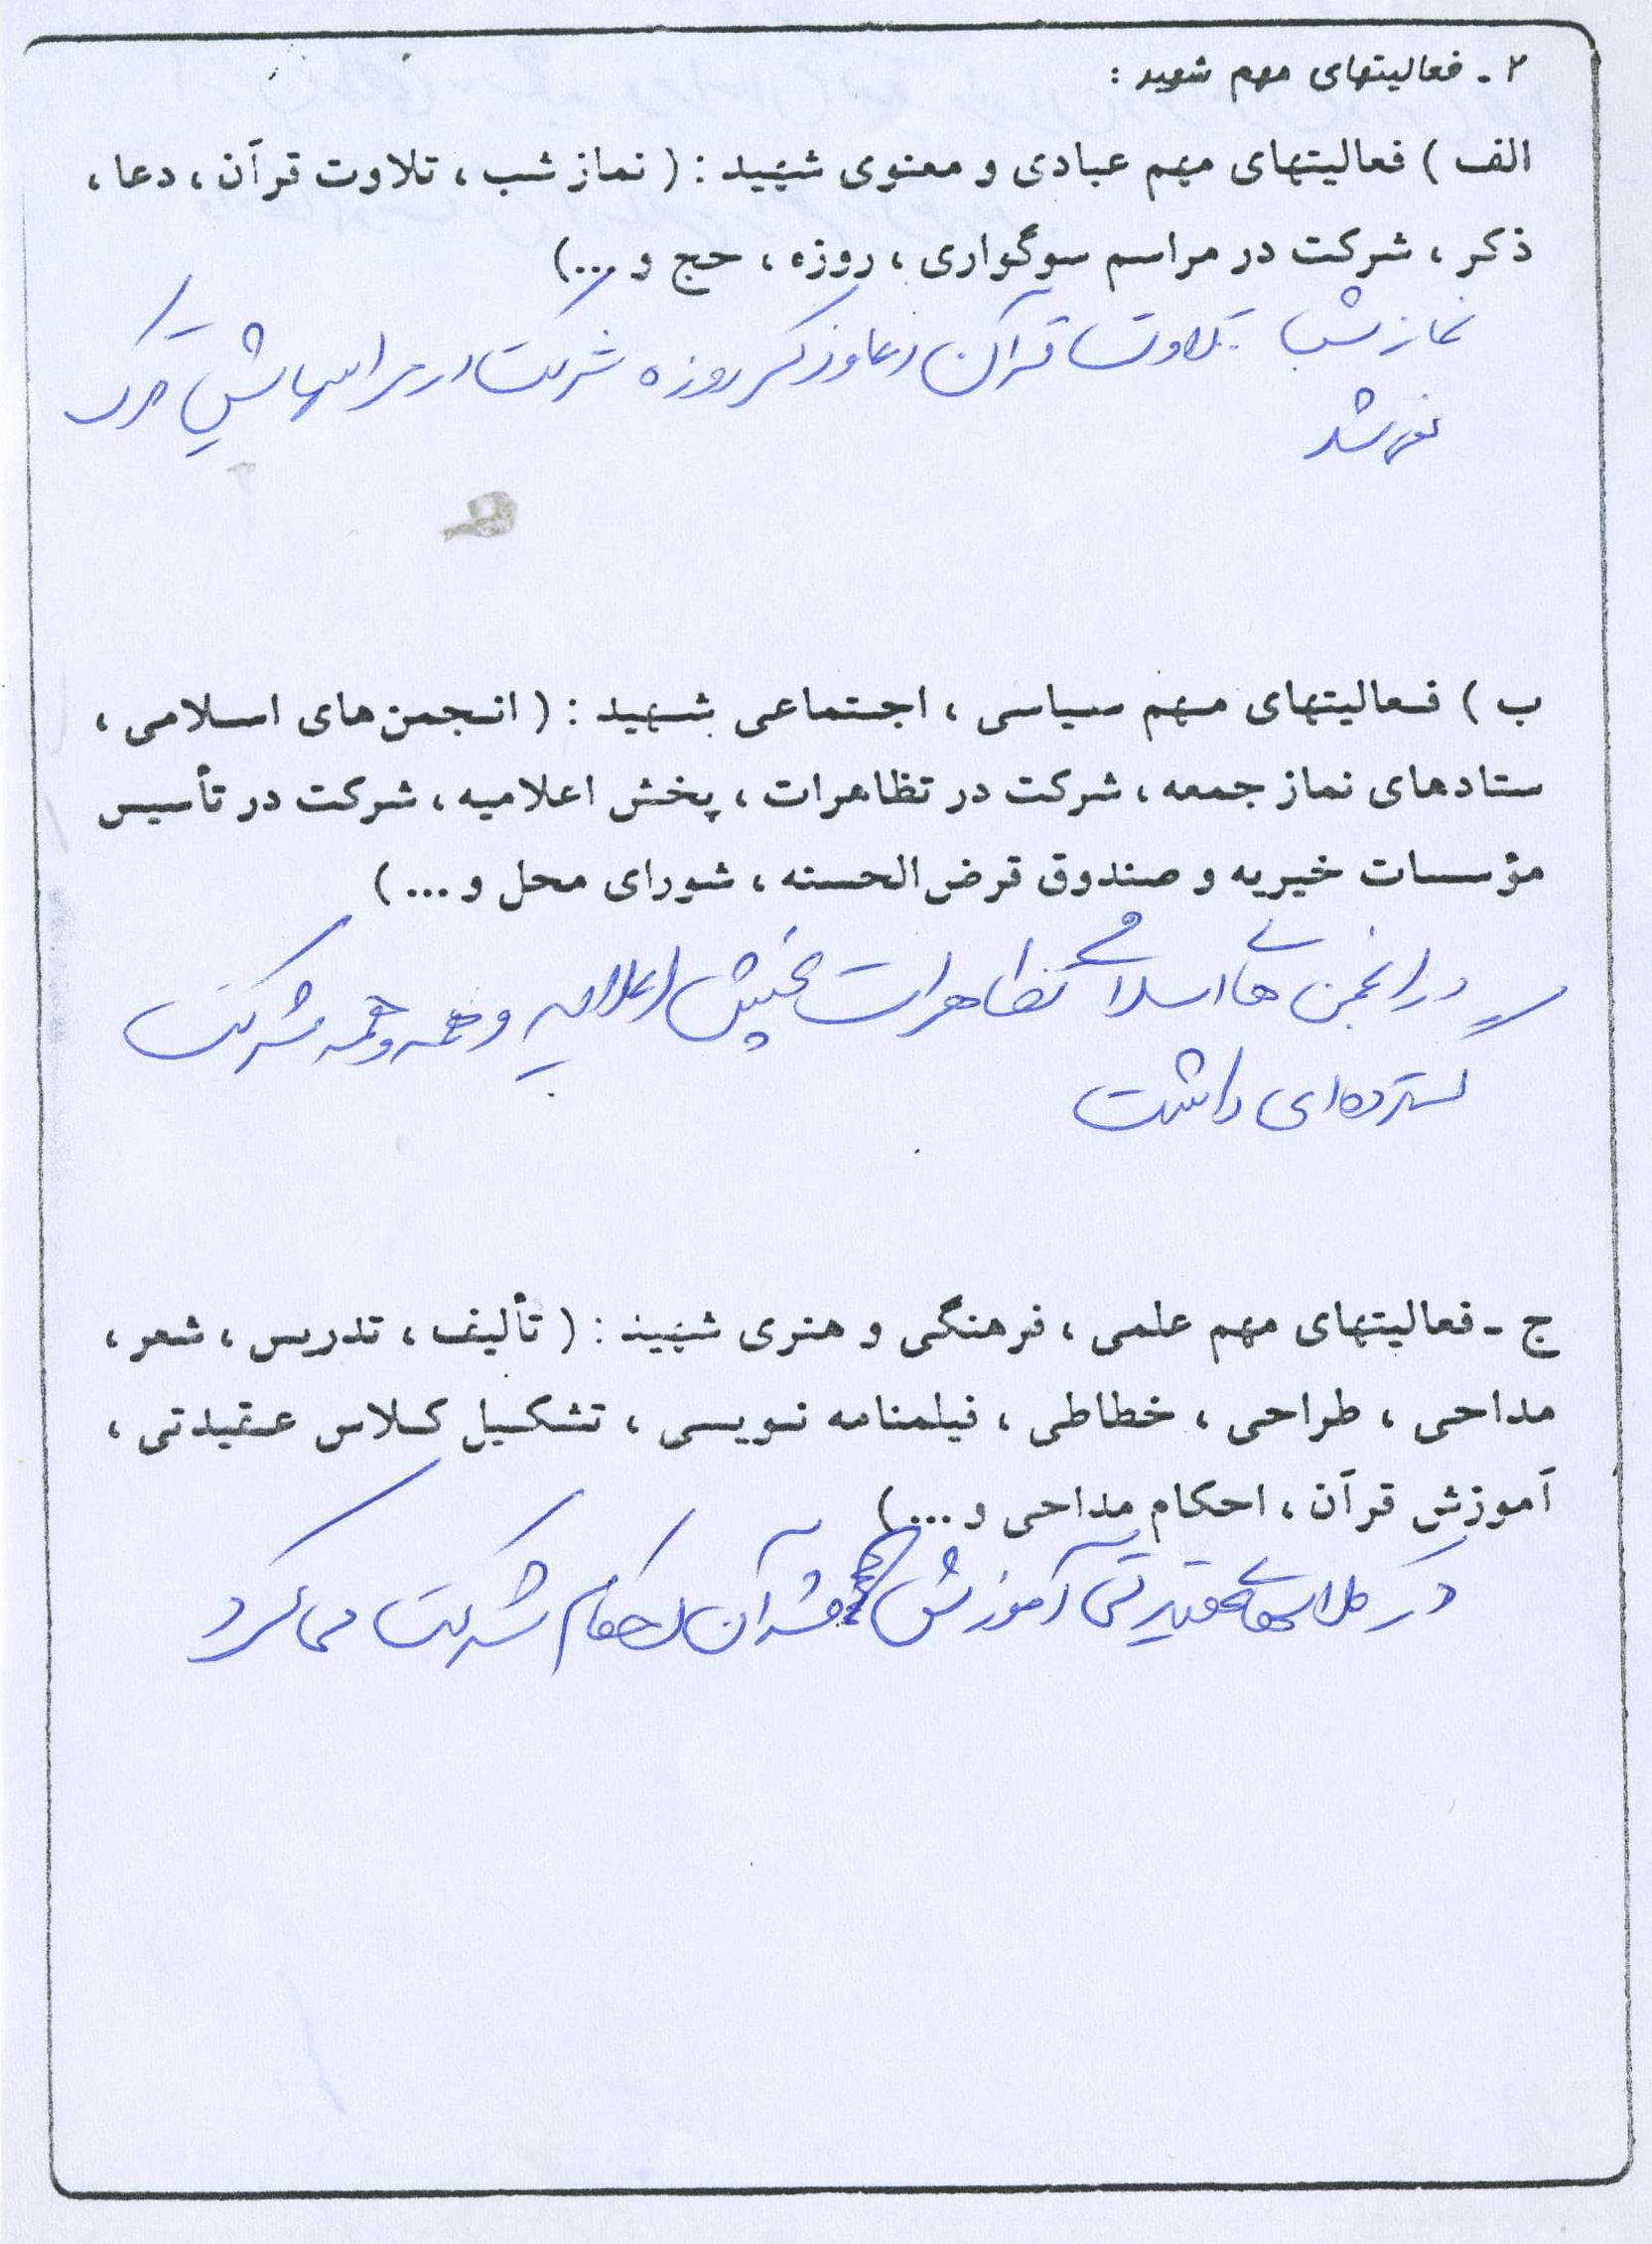 ۲ - فعالیتهای مهم شهید :
الف ) فعالیتهای مهم عبادی و معنوی شهید : ( نماز شب ، تلاوت قرآن ، دعا ،
ذکر ، شرکت در مراسم سوگواری ، روزه ، حج و ...)
نماز شب تلاوت قرآن دعا و ذکر روزه شرکت در مراسمهایش ترک
نمی شد
ب ) فعالیتهای مهم سیاسی ، اجتماعی شهید : ( انجمن های اسلامی ،
ستادهای نماز جمعه ، شرکت در تظاهرات ، پخش اعلامیه ، شرکت در تأسیس
مؤسسات خیریه و صندوق قرض الحسنه ، شورای محل و ... )
در انجمن های اسلامی تظاهرات پخش اعلامیه و همه و همه شرکت
گسترده ای داشت
ج - فعالیتهای مهم علمی ، فرهنگی و هنری شهید : ( تألیف ، تدریس ، شعر ،
مداحی ، طراحی ، خطاطی ، فیلمنامه نویسی ، تشکیل کلاس عقیدتی ،
آموزش قرآن ، احکام مداحی و ...)
در کلاسهای عقیدتی آموزش قرآن احکام شرکت می کرد